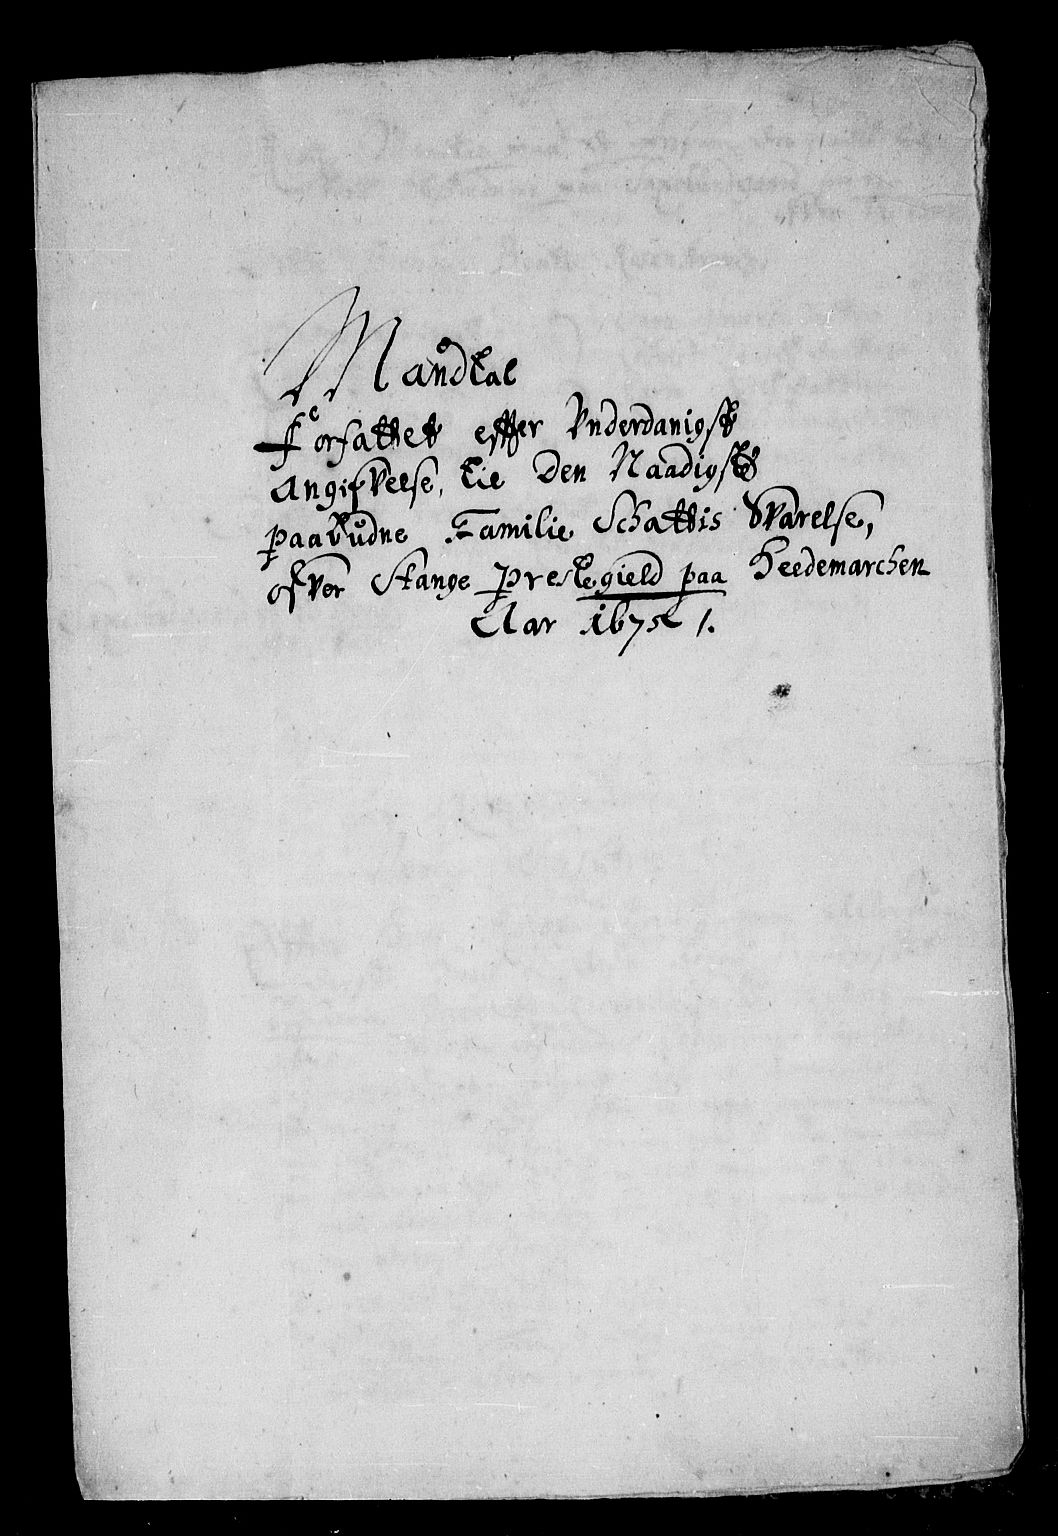 Mandtal
Forfattet effter Vnderdanigst
Angifvelse, til Den Naadigste
paabudne Familie Schattis Svarelse,
ofver Stange Prestegield paa Hedemarchen
Aar 1675 /.